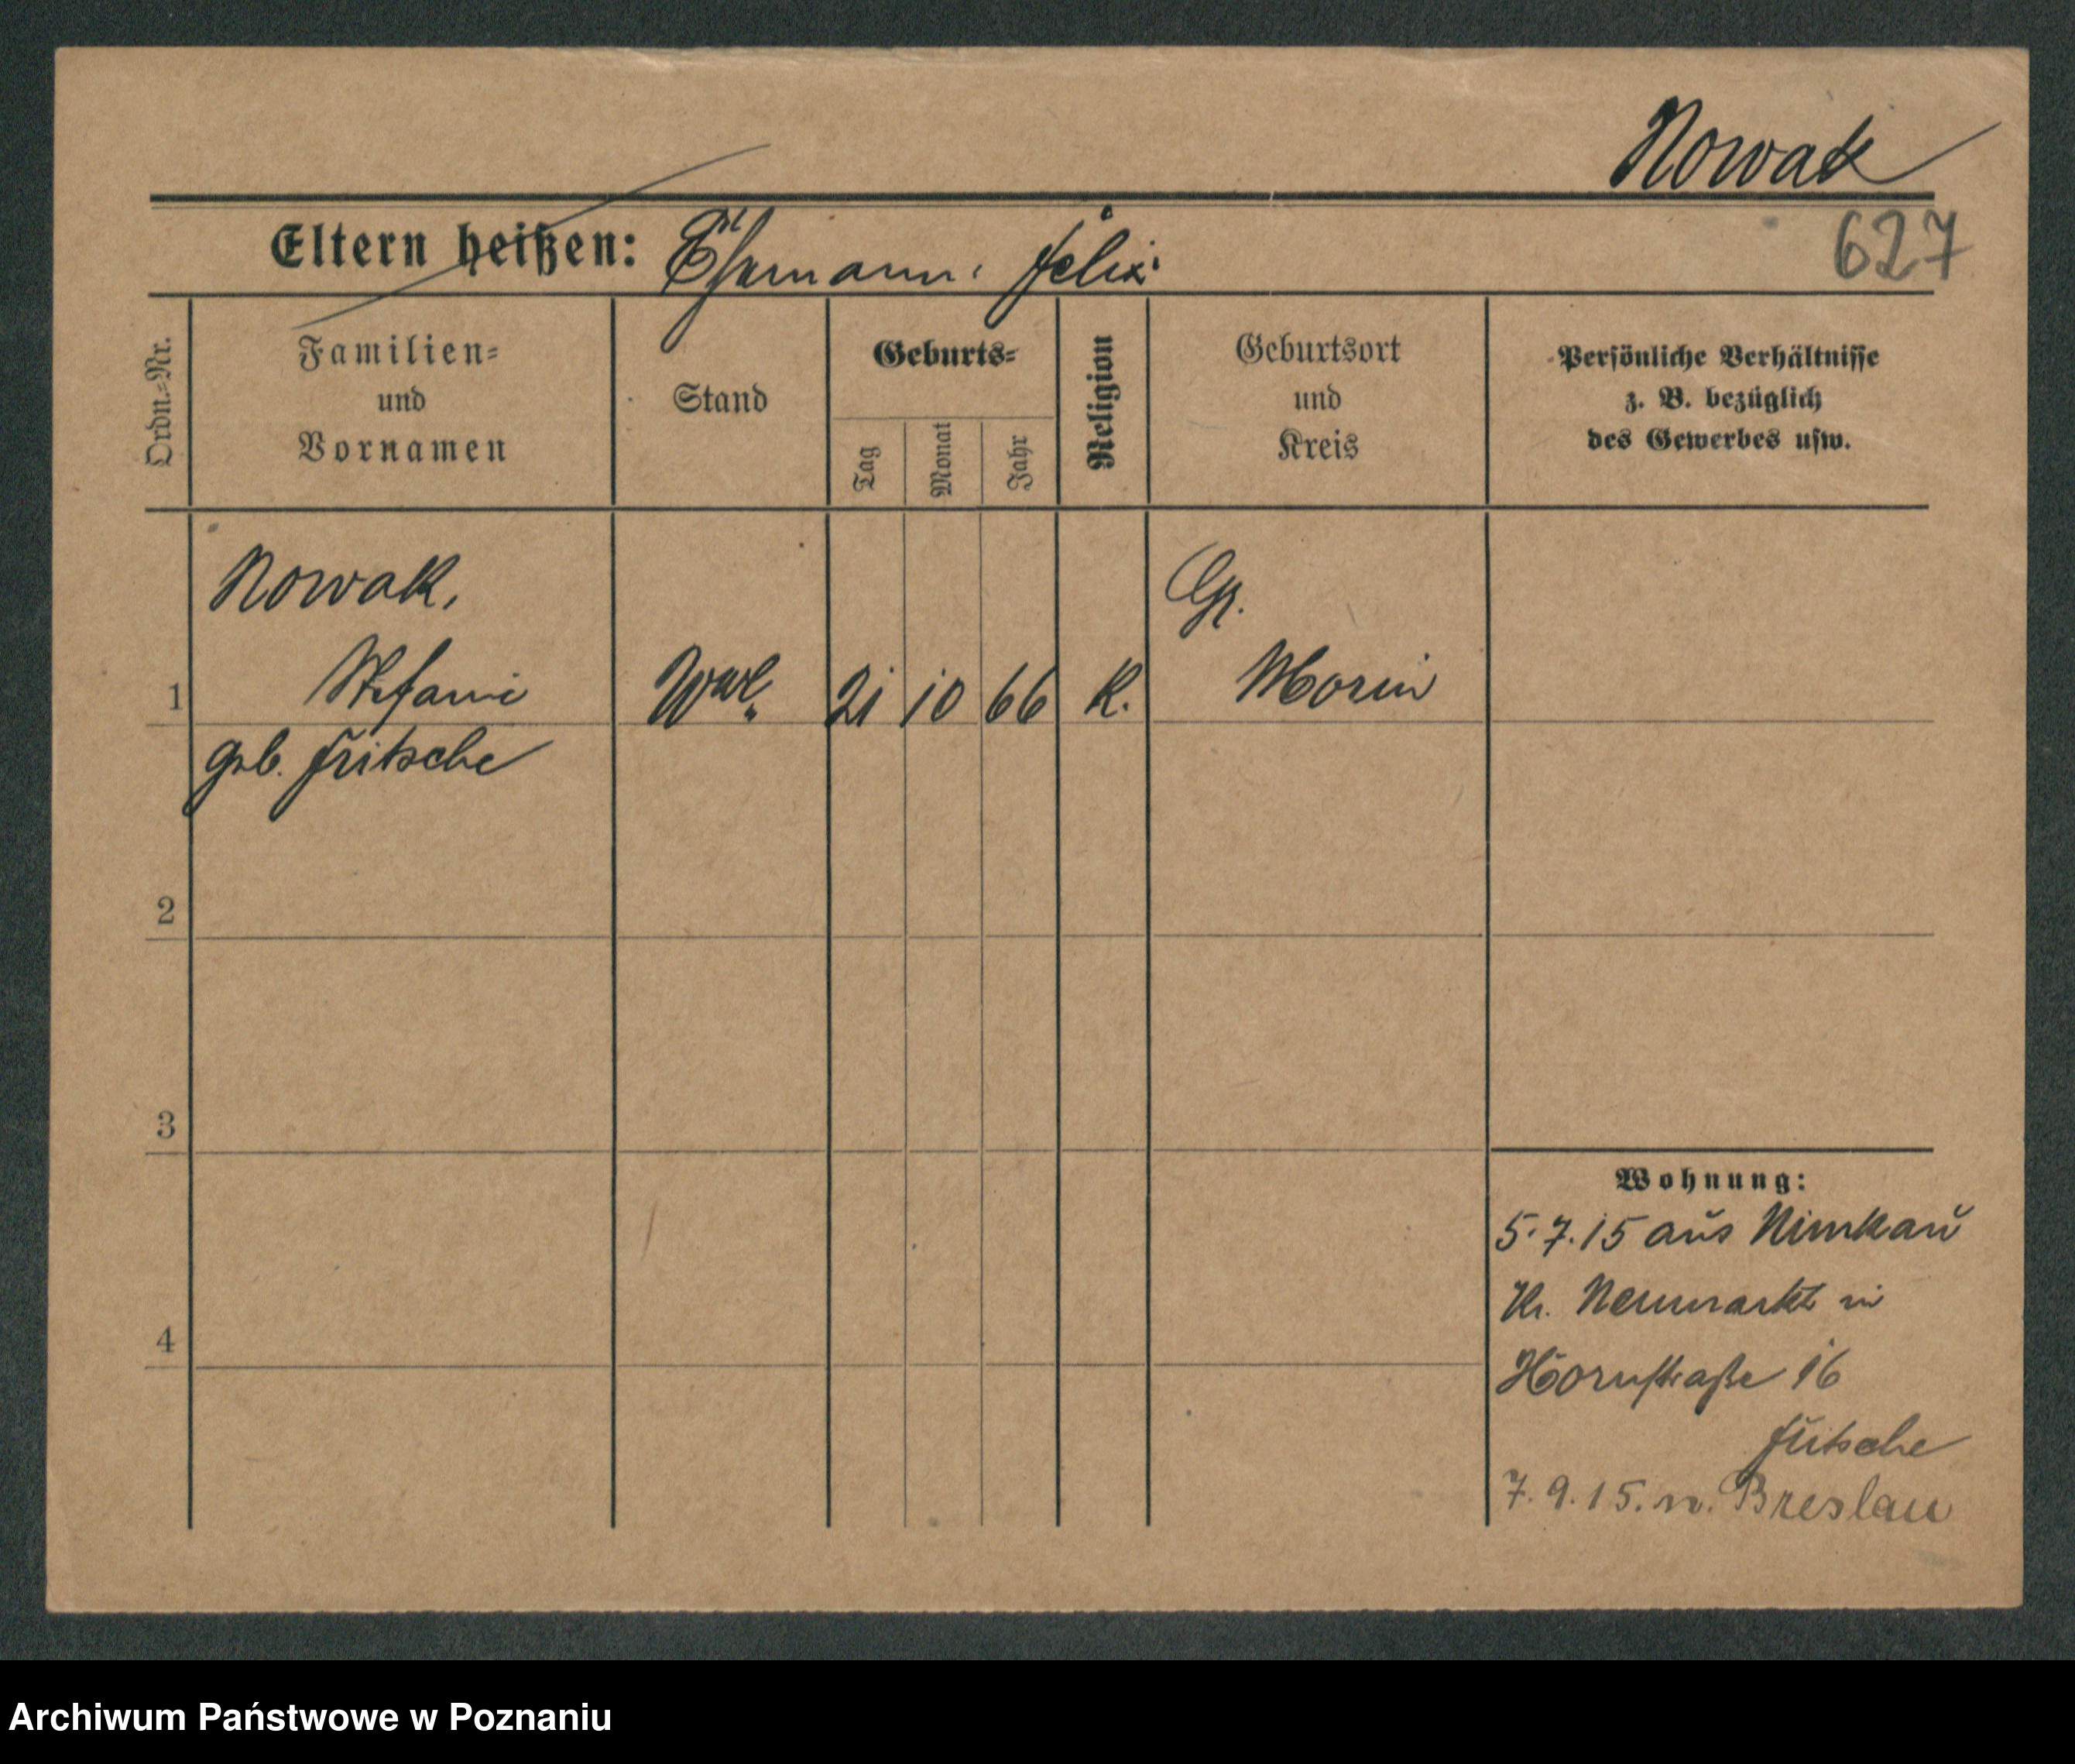 Nowak
627
Eltern heißen: Ehemann: Felix
Ordn.=Nr.
Familien=
und
Vornamen
Stand
Geburts=
Tag
Monat
Jahr
Religion
Geburtsort
und
Kreis
Persönliche Verhältnisse
z. B. bezüglich
des Gewerbes usw.
Nowak,
Gr.
1 Stefanie 21 10 66 K. Morin
geb. Fritsche
2
3
Wohnung:
5.7.15 aus Nimkau
Kr. Neumarkt in
4
Hornstraße 16
Fritsche
7.9.15. n. Breslau
Archiwum Państwowe w Poznaniu